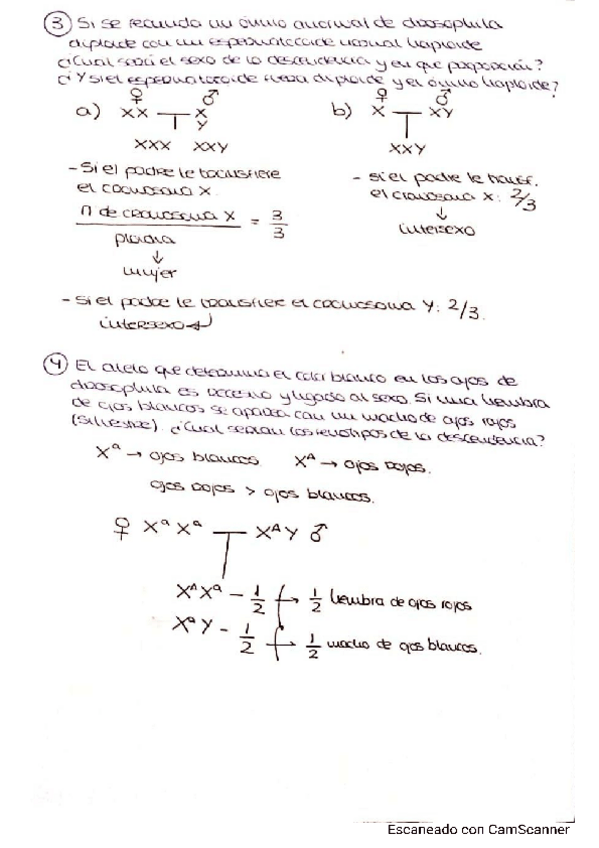 ③ Si se fecunda un óvulo anormal de drosophila
diploide con un espermatozoide normal haploide
¿Cual será el sexo de la descendencia y en que proporción?
¿Y si el espermatozoide fuera diploide y el óvulo haploide?
♀ ♂ ♀ ♂
a) XX X b) X XY
Y
XXX XXY XXY
- Si el padre le transfiere - si el padre le transf.
el cromosoma X. el cromosoma X: 2/3
n de cromosoma X = 3 ↓
ploidia 3 intersexo
↓
mujer
- Si el padre le transfier el cromosoma Y: 2/3.
intersexo ↵
④ El alelo que determina el color blanco en los ojos de
drosophila es recesivo y ligado al sexo. Si una hembra
de ojos blancos se aparea con un macho de ojos rojos
(silvestre). ¿Cual serian los fenotipos de la descendencia?
Xᵃ → ojos blancos Xᴬ → ojos rojos.
ojos rojos > ojos blancos.
♀ XᵃXᵃ XᴬY ♂
XᴬXᵃ - 1/2 → 1/2 hembra de ojos rojos
XᵃY - 1/2 → 1/2 macho de ojos blancos.
Escaneado con CamScanner